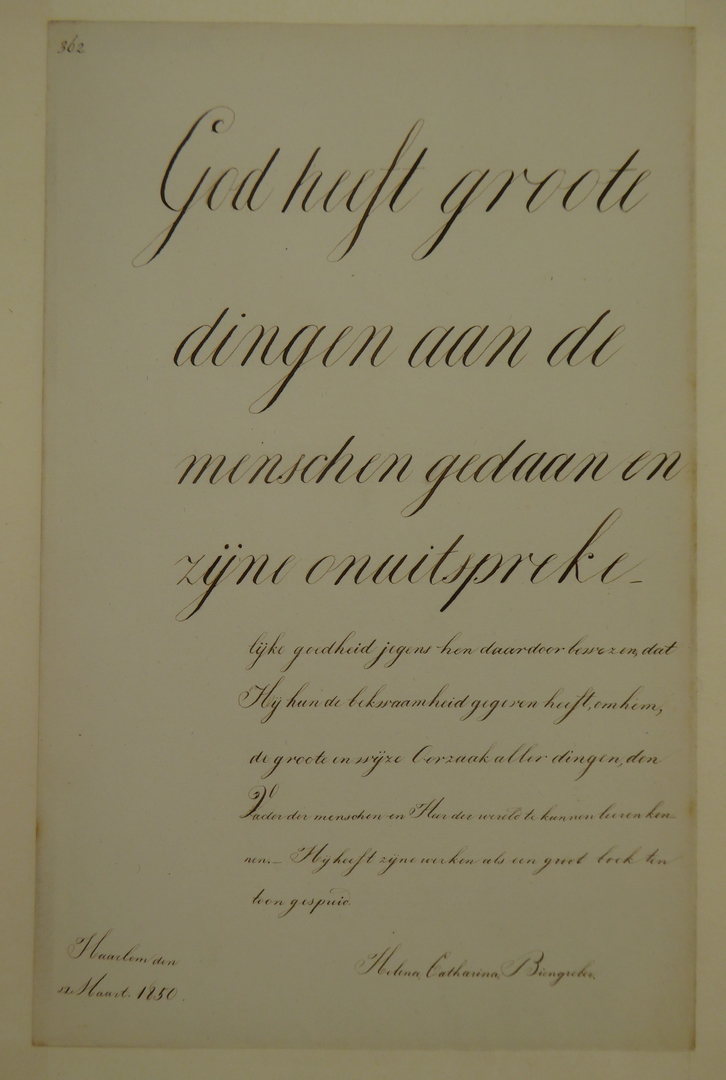 362
God heeft groote
dingen aan de
menschen gedaan en
zijne onuitspreke-
lijke goedheid jegens hen daardoor bewezen, dat
Hij hun de bekwaamheid gegeven heeft, om hem,
de groote en wijze Oorzaak aller dingen, den
Vader der menschen en Heer der wereld te kunnen leeren ken-
nen. _ Hij heeft zijne werken als een groot boek ten
toon gespreid.
Haarlem den
Maart 1850.
Helena Catharina